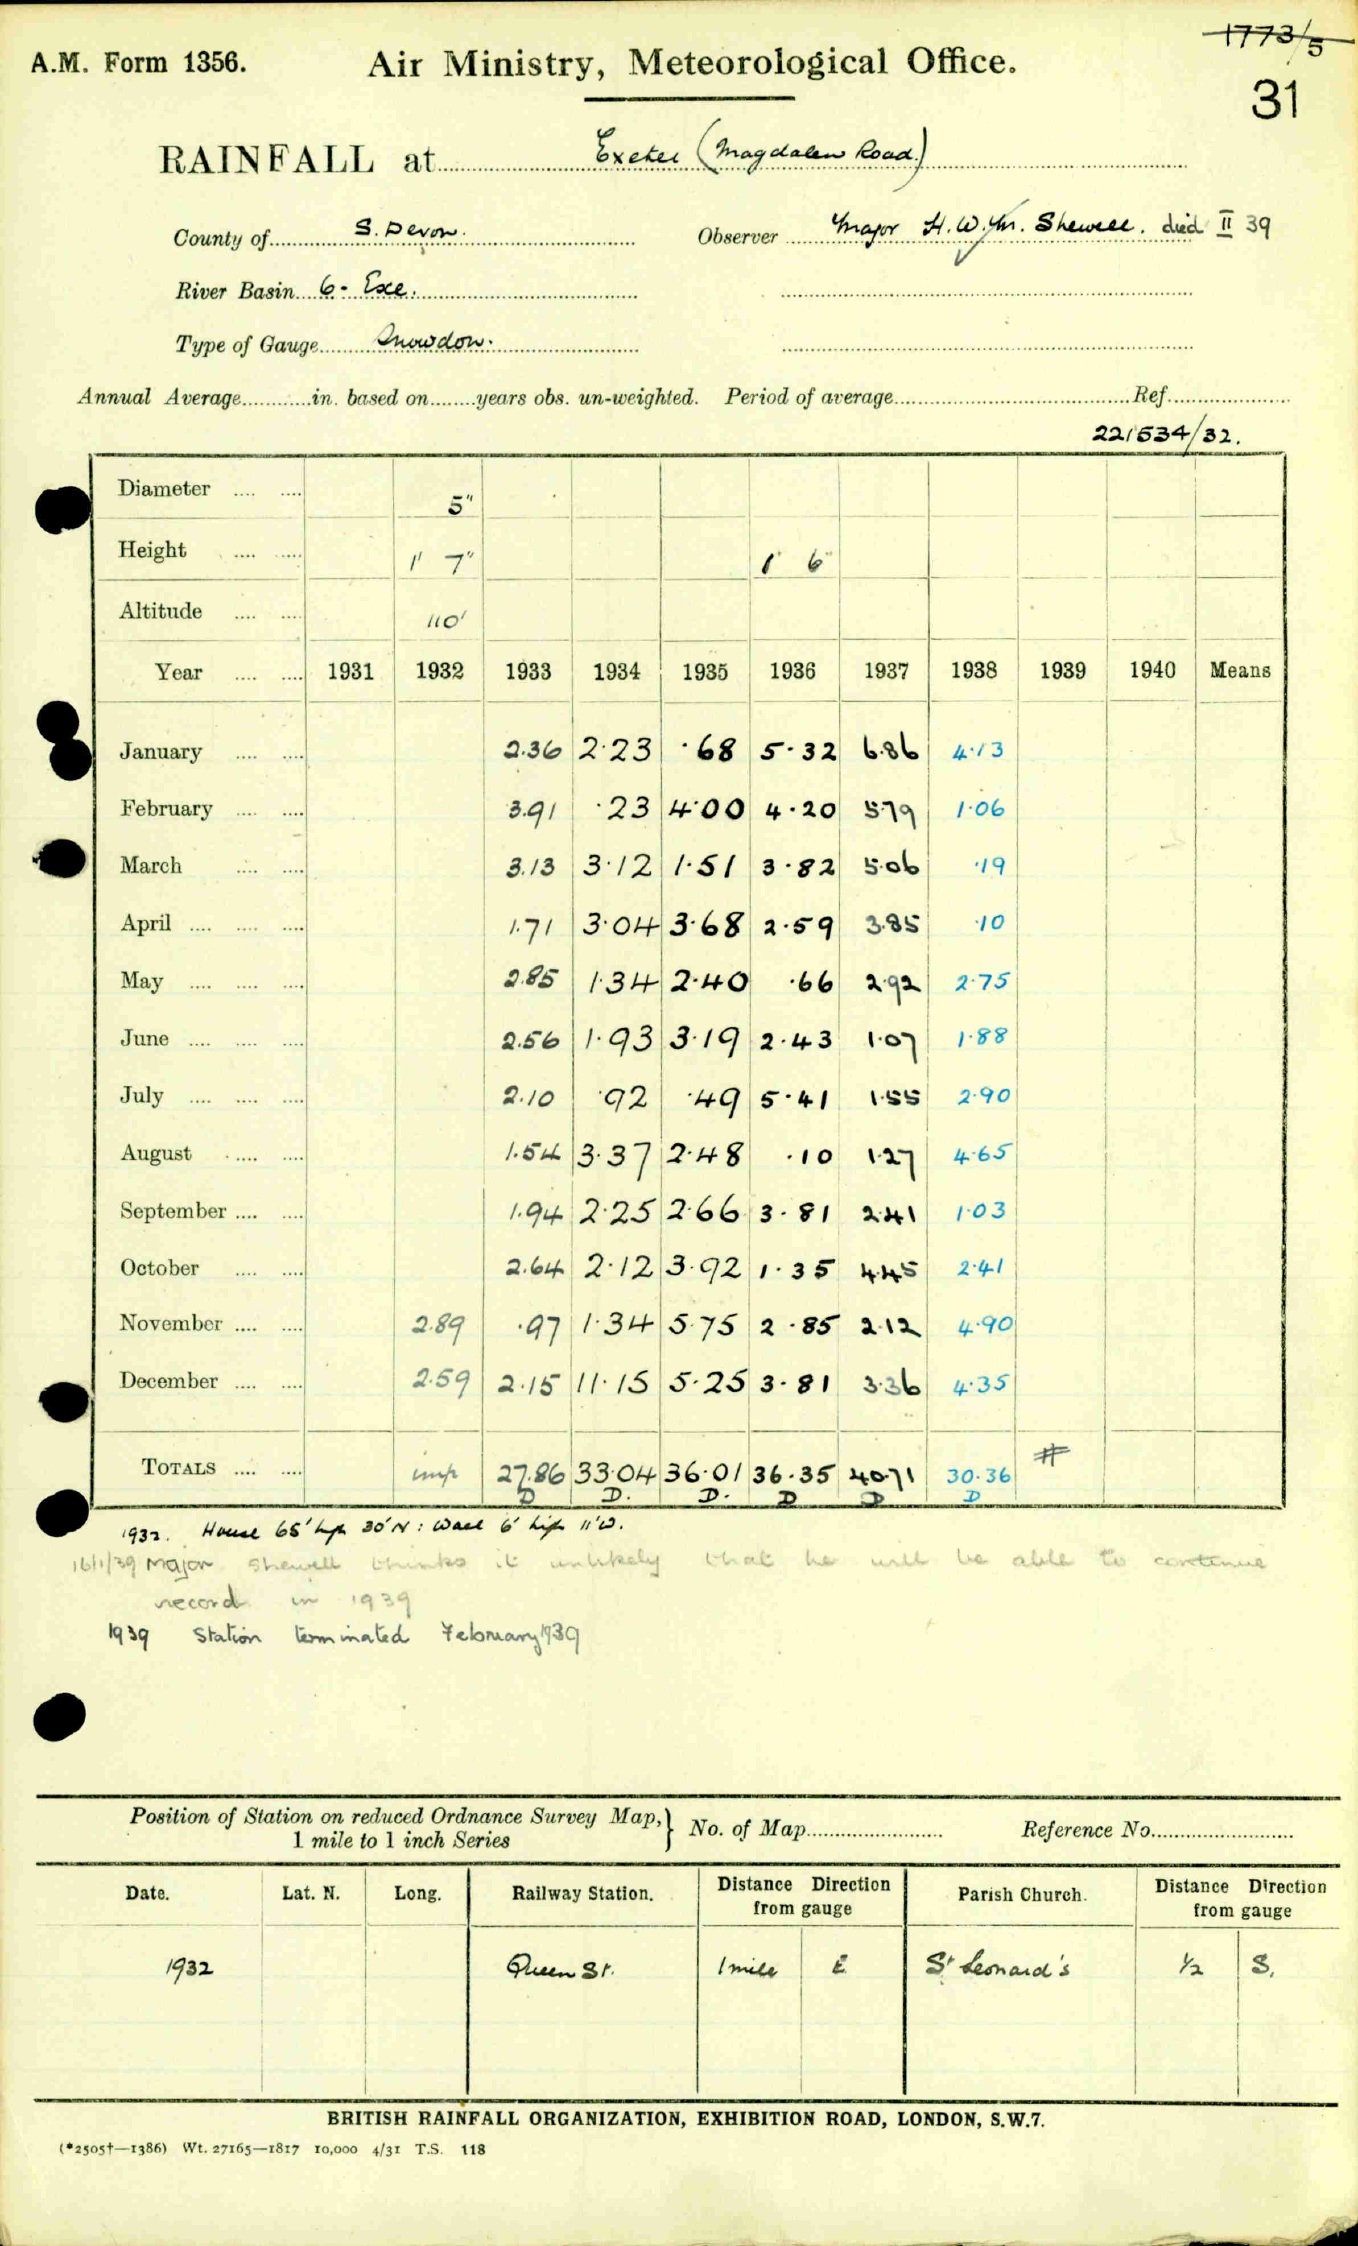 1773/5
A.M. Form 1356. Air Ministry, Meteorological Office.
31
RAINFALL at Exeter (Magdalen Road.)
County of S. Devon. Observer Major H. W. M. Shewell. died II 39
River Basin 6 - Exe.
Type of Gauge Snowdon.
Annual Average in. based on years obs. un-weighted. Period of average Ref.
221534/32.
Diameter 5"
Height 1' 7" 1' 6"
Altitude 110'
Year 1931 1932 1933 1934 1935 1936 1937 1938 1939 1940 Means
January 2.36 2.23 .68 5.32 6.86 4.13
February 3.91 .23 4.00 4.20 5.79 1.06
March 3.13 3.12 1.51 3.82 5.06 .19
April 1.71 3.04 3.68 2.59 3.85 .10
May 2.85 1.34 2.40 .66 2.92 2.75
June 2.56 1.93 3.19 2.43 1.07 1.88
July 2.10 .92 .49 5.41 1.55 2.90
August 1.54 3.37 2.48 .10 1.27 4.65
September 1.94 2.25 2.66 3.81 2.41 1.03
October 2.64 2.12 3.92 1.35 4.45 2.41
November 2.89 .97 1.34 5.75 2.85 2.12 4.90
December 2.59 2.15 11.15 5.25 3.81 3.36 4.35
TOTALS imp 27.86 33.04 36.01 36.35 40.71 30.36 #
D D. D. D D D
1932. House 65' high 30' N: Wall 6' high 11' W.
16/1/39 Major Shewell thinks it unlikely that he will be able to continue
record in 1939
1939 Station terminated February 1939
Position of Station on reduced Ordnance Survey Map, 1 mile to 1 inch Series } No. of Map Reference No.
Date. Lat. N. Long. Railway Station. Distance Direction from gauge Parish Church. Distance Direction from gauge
1932 Queen St. 1 mile E St Leonard's 1/2 S.
BRITISH RAINFALL ORGANIZATION, EXHIBITION ROAD, LONDON, S.W.7.
(*2505†—1386) Wt. 27165—1817 10,000 4/31 T.S. 118